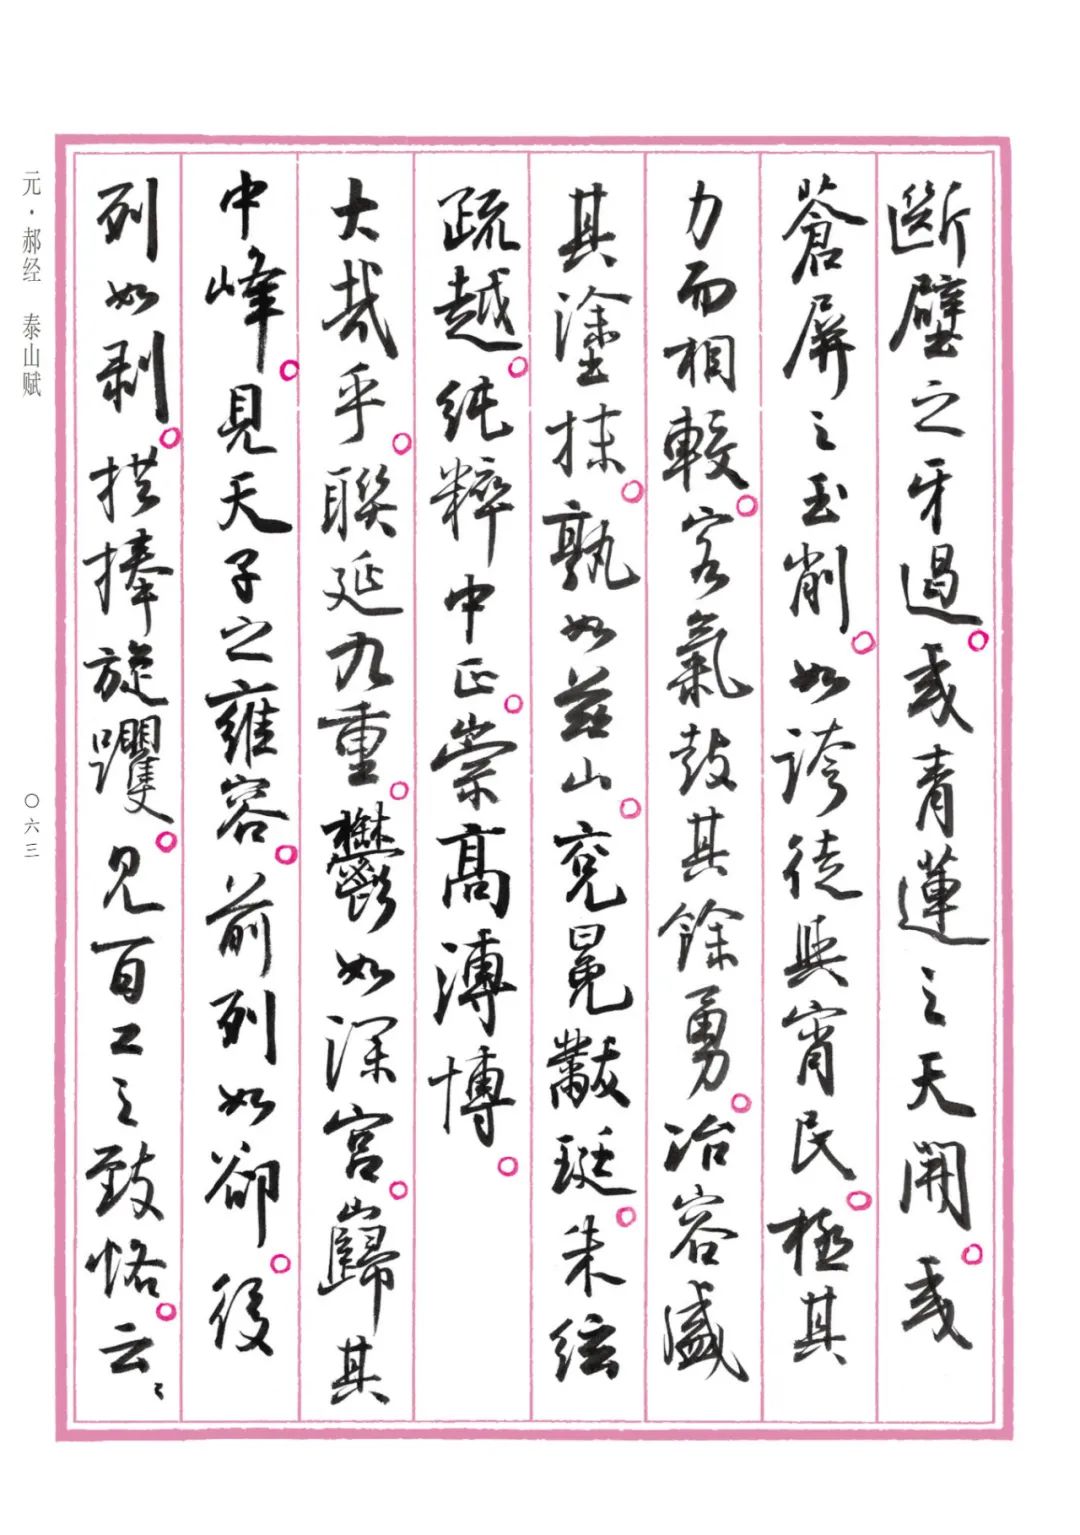 斷壁之牙遏。或青蓮之天開。或
蒼屏之玉削。如誇徒與宵民。極其
力而相較。客氣鼓其餘勇。冶容盛
其塗抹。孰如茲山。衮冕黻珽。朱絃
疏越。純粹中正。崇高溥博。
大哉乎。聯延九重。鬱如深宮。巋其
中峰。見天子之雍容。前列如卻。後
列如剥。拱捧旋躩。見百工之致恪。云〻
元·郝经 泰山赋
〇六三